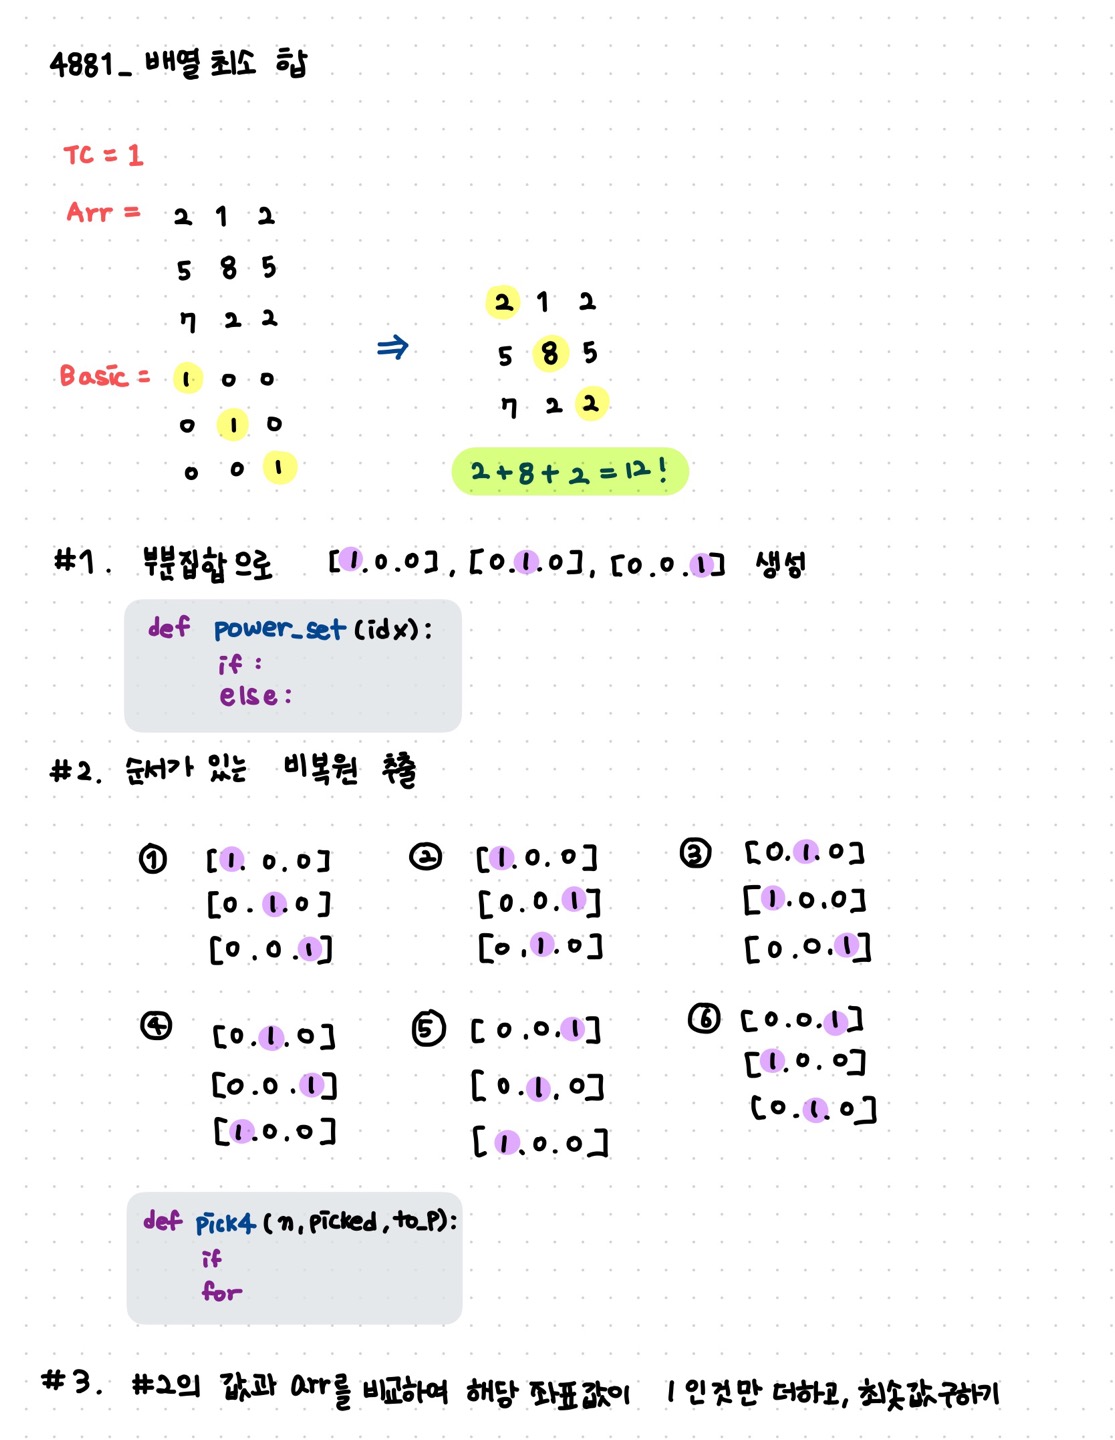 4881_ 배열 최소 합
TC = 1
Arr = 2 1 2
5 8 5
7 2 2
Basic = 1 0 0
0 1 0
0 0 1
⇒
2 1 2
5 8 5
7 2 2
2+8+2=12!
#1. 부분집합으로 [1.0.0], [0.1.0], [0.0.1] 생성
def power_set(idx):
if :
else:
#2. 순서가 있는 비복원 추출
① [1. 0.0]
[0.1.0]
[0.0.1]
② [1.0.0]
[0.0.1]
[0.1.0]
③ [0.1.0]
[1.0.0]
[0.0.1]
④ [0.1.0]
[0.0.1]
[1.0.0]
⑤ [0.0.1]
[0.1.0]
[1.0.0]
⑥ [0.0.1]
[1.0.0]
[0.1.0]
def pick4(n,picked,to_p):
if
for
#3. #2의 값과 arr를 비교하여 해당 좌표값이 1인것만 더하고, 최솟값구하기